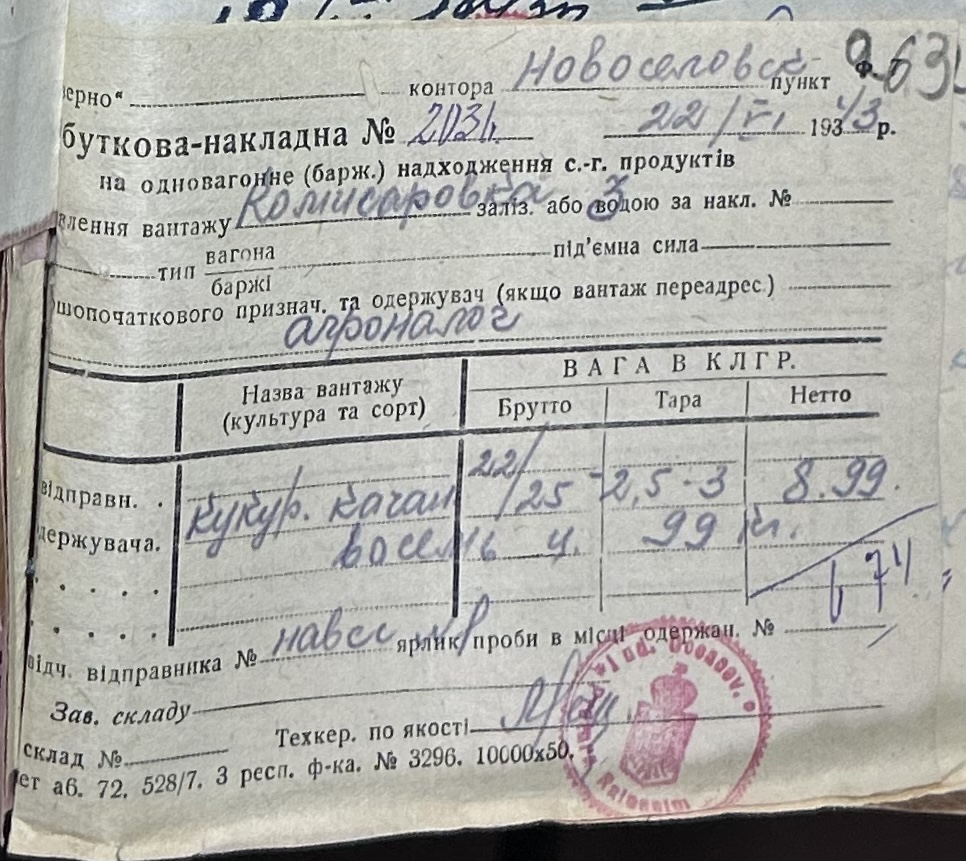 ерно" контора Новоселовск пункт
буткова-накладна № 2031. 22/VI 1943 р.
на одновагонне (барж.) надходження с.-г. продуктів
влення вантажу Комисаровка заліз. або водою за накл. №
3
тип вагона баржі під'ємна сила
шопочаткового признач. та одержувач (якщо вантаж переадрес.)
агроналог
Назва вантажу (культура та сорт) ВАГА В КЛГР.
Брутто Тара Нетто
відправн. . Кукур. качан 22/25 2,5-3 8.99.
держувача. восемь ц. 99 кг.
674
ідч. відправника № ярлик проби в місці одержан. №
Зав. складу
склад № Техкер. по якості
ет аб. 72. 528/7. 3 респ. ф-ка. № 3296. 10000x50.